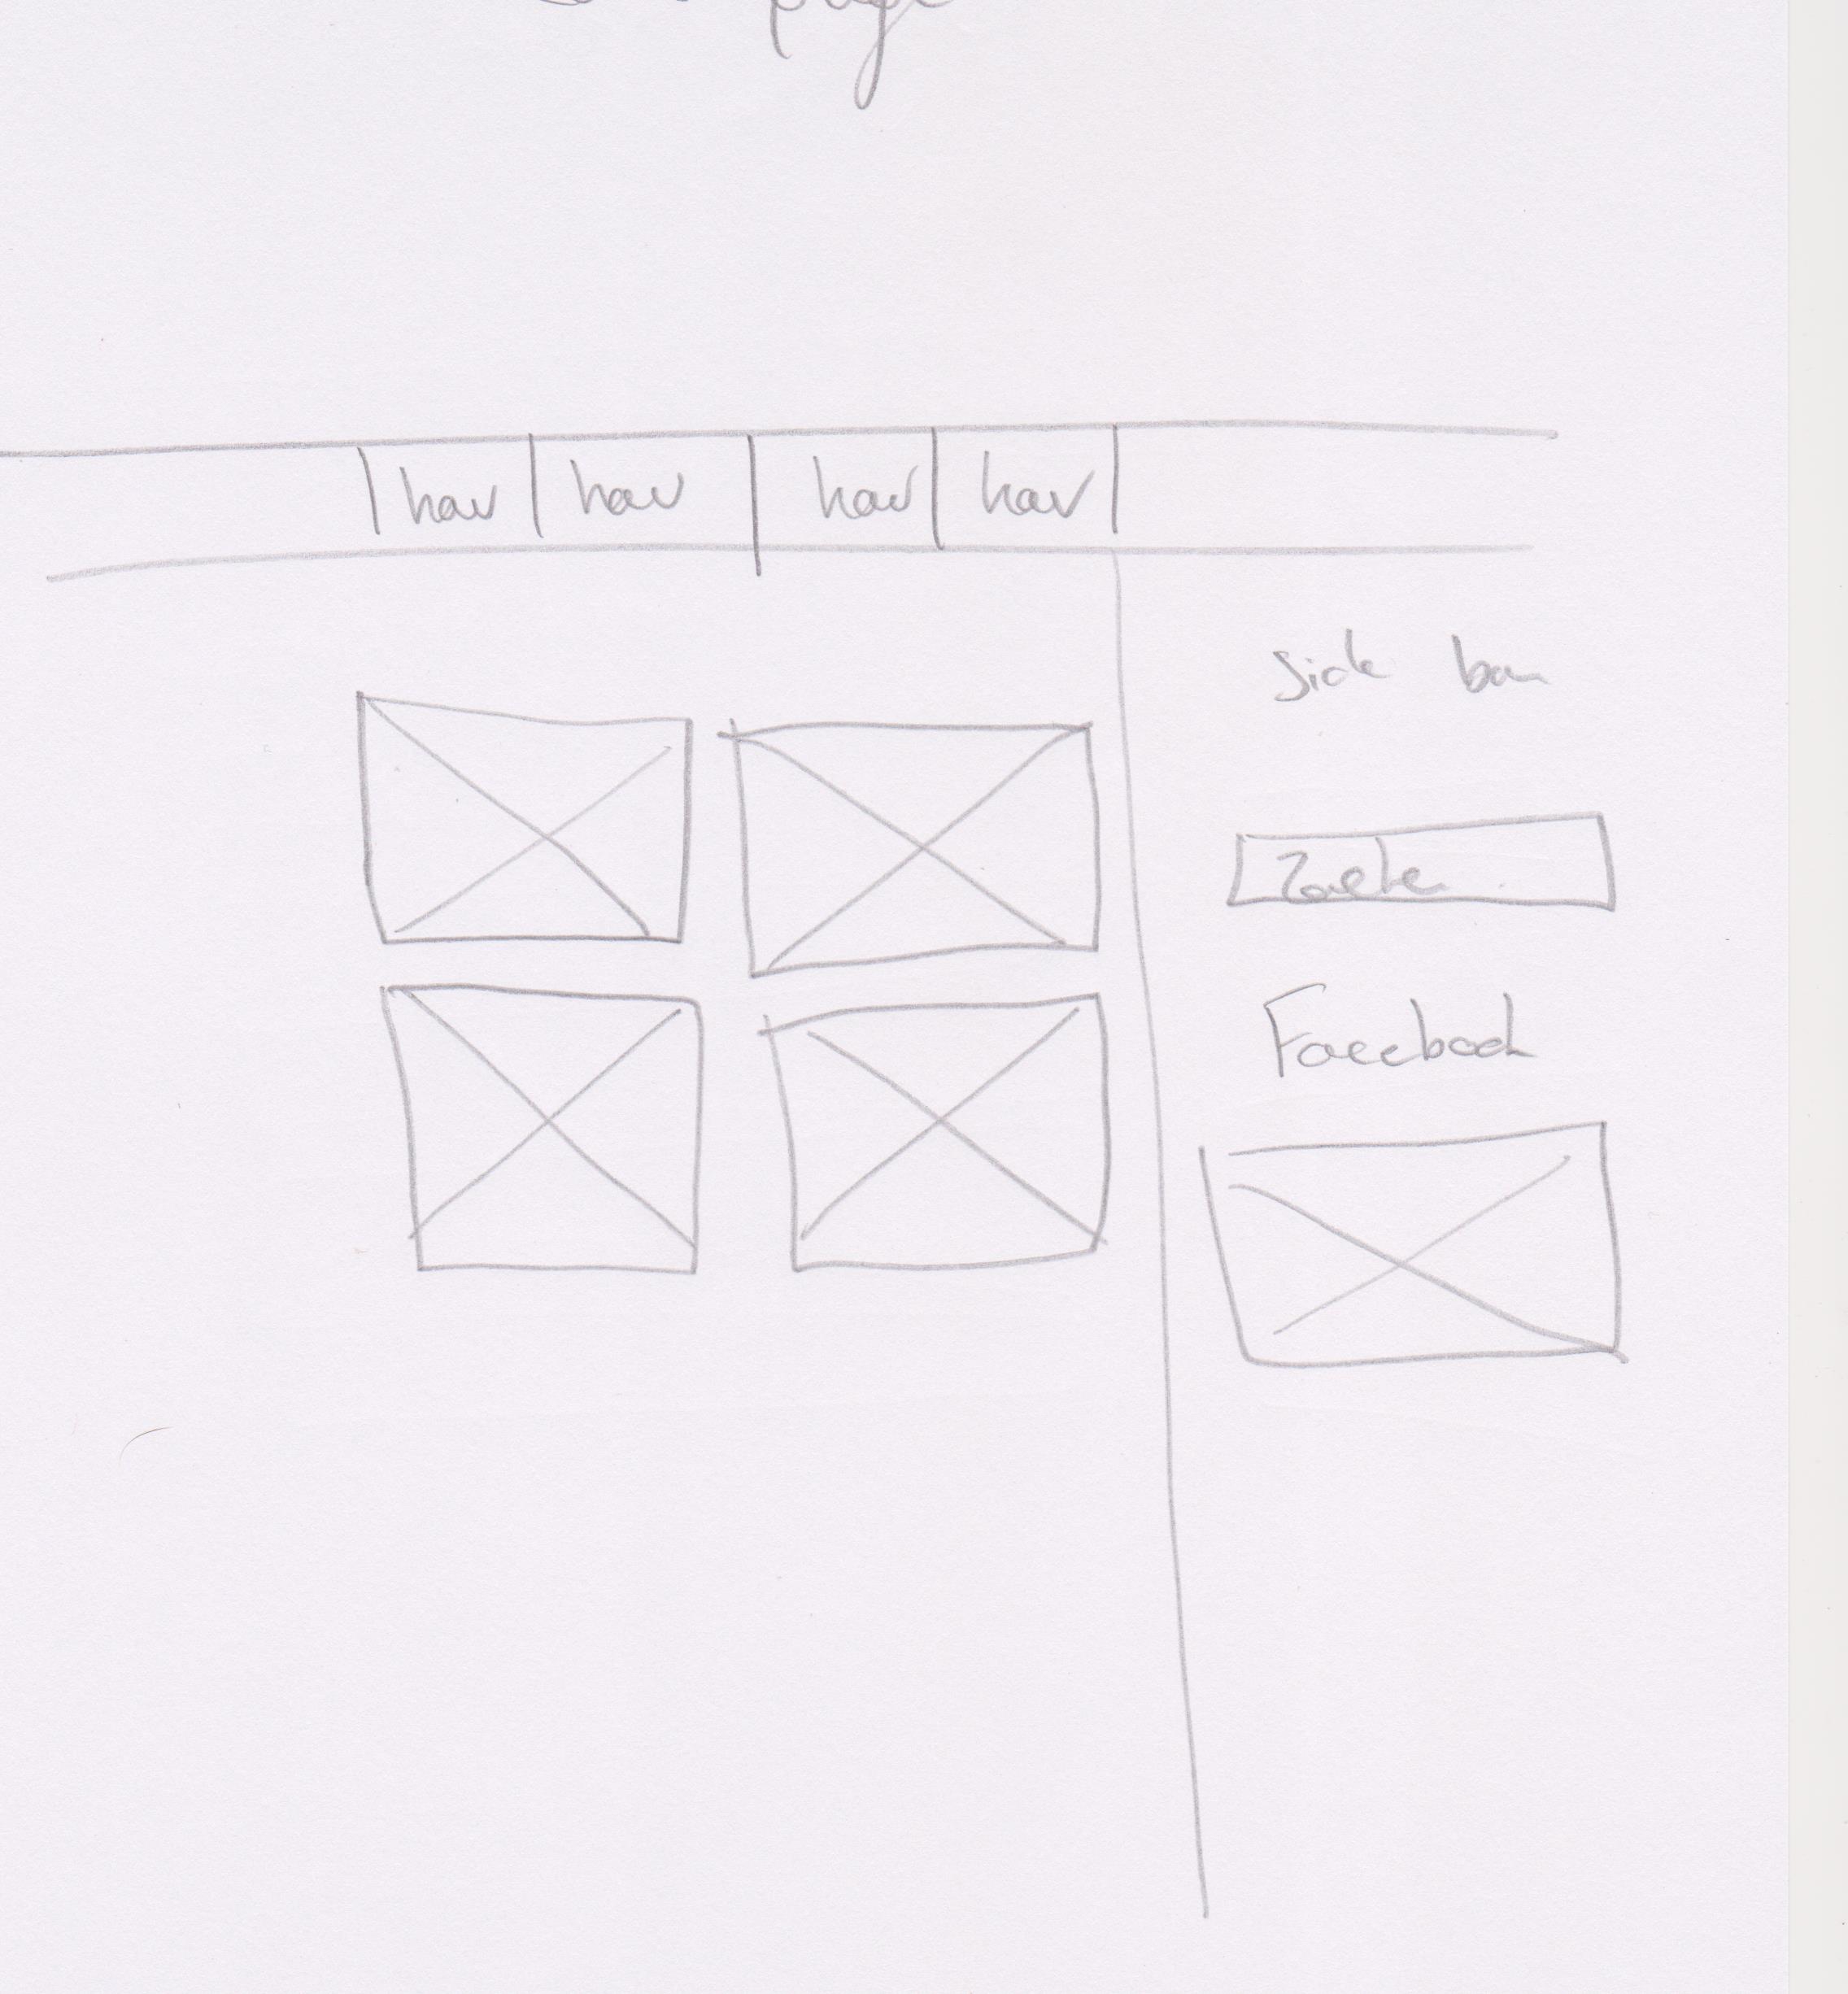 page
nav nav nav nav
Side bar
Zoeken
Facebook